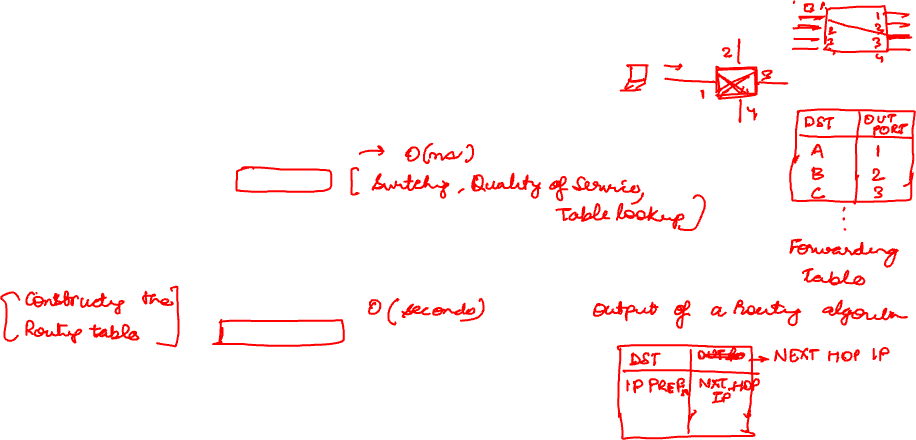 1
2
2
3
3
4
2
1
3
4
DST OUT PORT
A 1
B 2
C 3
Forwarding
Table
→ O(ns)
[ Switching, Quality of Service,
Table lookup ]
Constructing the
Routing table
O(seconds)
Output of a Routing algorithm
DST → NEXT HOP IP
IP PREFIX NXT HOP
IP